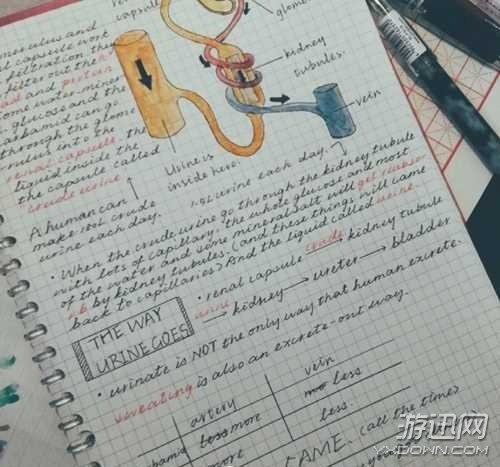 capsule
glome
merulus and
capsule work
filtration, they
filter out the
and protein
some water, miner
glucose and the
carbamid can go
through the glome
rulus into the
renal capsule, the
liquid inside the
the capsule called
crude urine
kidney
tubules.
vein
Urine is
inside here.
A human can
make 180L crude
urine each day.
1.5L urine each day.
· When the crude urine go through the kidney tubule
with lots of capillary, the whole glucose and most
of the water and some mineral salt will get reabsor
b by kidney tubules. (and these things will came
back to capillaries) And the liquid called urine.
THE WAY
URINE GOES
· renal capsule crude urine → kidney tubule
→ kidney → ureter → bladder
· urinate is NOT the only way that human excrete.
sweating is also an excrete-out way.
artery
vein
more
less
more
less.
AME. (all the time)
游迅网
YXDOWN.COM